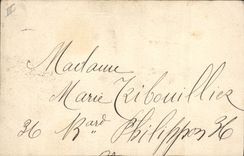 Madame
Marie Tribouillier
36 Bard Philippon 36